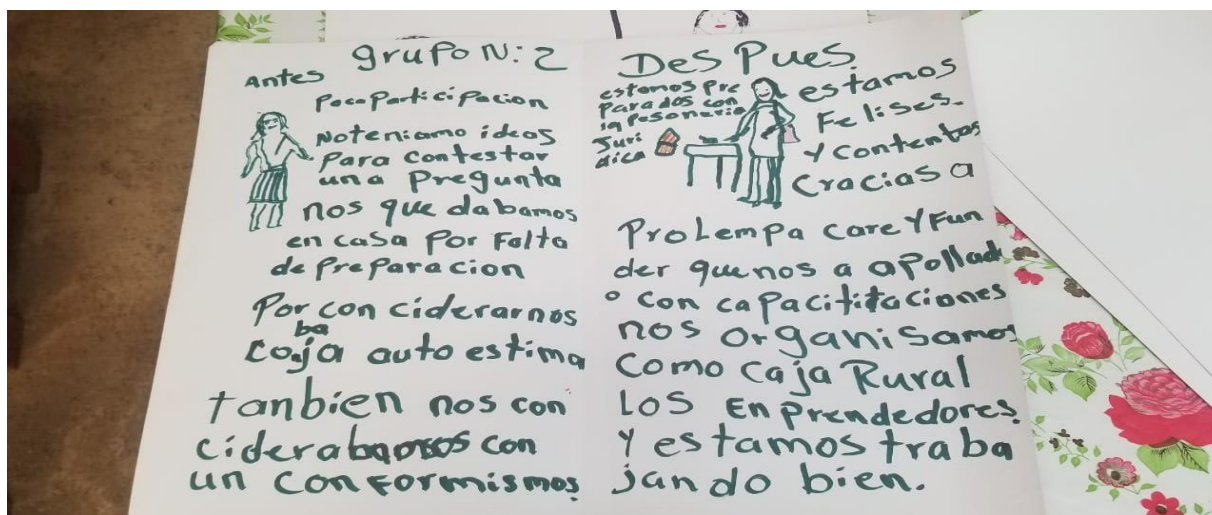 grupo N: 2
Antes
Poca Participacion
No teniamo ideas
Para contestar
una Pregunta
nos que dabamos
en casa Por Falta
de PreParacion
Por con ciderarnos
ba
ja auto estima
tanbien nos con
ciderabamos con
un conFormismos
DesPues
estamos Pre
Parados con
la Pesoneria
Juri
dica
estamos
Felises.
y contentos
Cracias a
ProLempa care Y Fun
der que nos a apollad
o con capacititaciones
nos organisamos
Como caja Rural
Los EnPrendedores
Y estamos traba
jando bien.